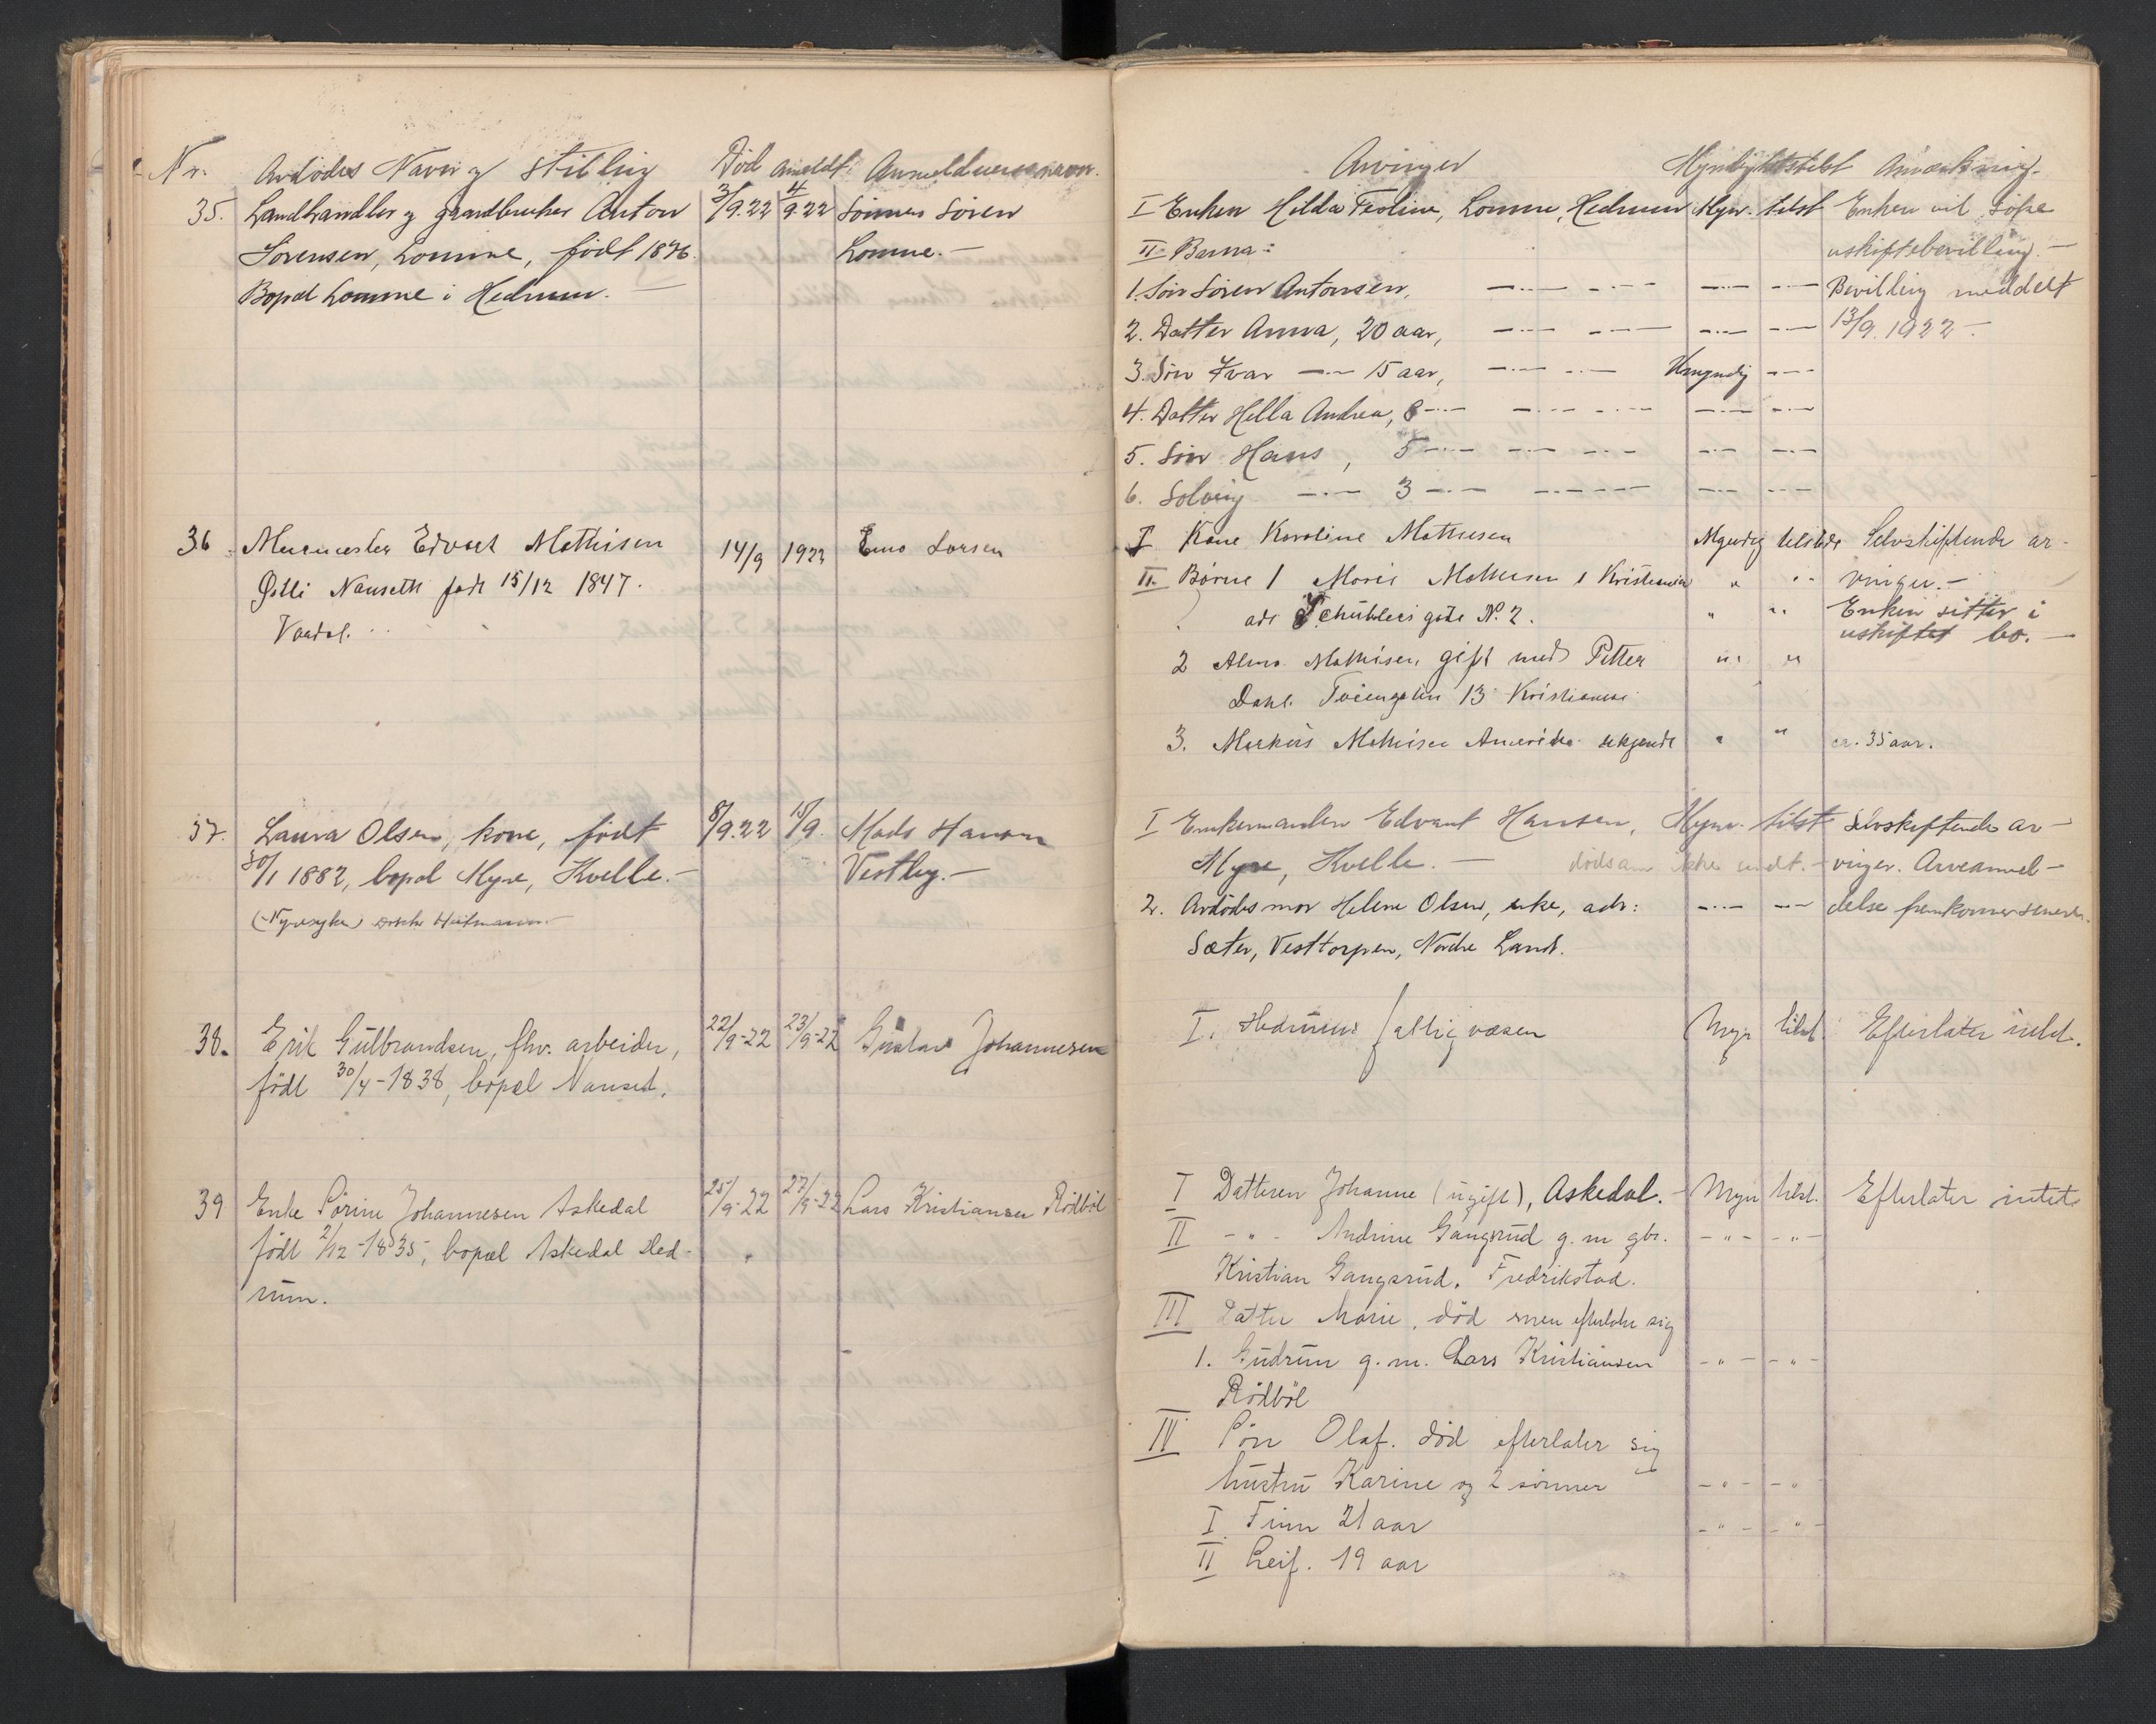 Nr. Avdödes Navn og stilling Död anmeldt. Anmelderens navn.
35. Landhandler og gaardbruker Anton 3/9.22 4/9.22 Sönnen Sören
Sorensen, Lomme, født 1876. Lomme.-
Bopæl Lomme i Hedrum.
36. Murmester Edvart Mathisen 14/9 1922 Lorsen
Nanseth født 15/12 1847.
37. Laura Olsen, kone, født 8/9.22 15/9. Mads Hansen
30/1 1882, bopæl Myre, Kvelle.- Vestby.-
38. Erik Gulbrandsen, fhv. arbeider, 22/9-22 23/9-22 Gustav Johannesen
født 30/4-1838, bopæl Nanset.
39 Enke Sörine Johannesen Askedal 25/9-22 27/9-22 Lars Kristiansen Rödböl
födt 2/12-1835, bopæl Askedal Hed-
rum.
Arvinger Myndighetstilst Anmerkning.
I Enken Hilda Teoline, Lomme, Hedrum Myn. tilst Enken vil söke
II. Barna: uskiftebevilling.-
1. Sön Sören Antonsen, —·— —·— —·— —·— Bevilling meddelt
2. Datter Anna, 20 aar, —·— —·— —·— —·— 13/9. 1922.-
3. Sön Ivar —·— 15 aar, —·— —·— Umyndig —·—
4. Datter Hella Andrea, 8 —·— —·— —·— —·— —·—
5. Sön Hans, 5 —·— —·— —·— —·— —·—
6. Solveig —·— 3 —·— —·— —·— —·—
I Kone Karoline Mathisen Myndig tilstede Selvskiftende ar-
II. Börne 1 Marie Mathisen i Kristiania " " vinger.-
adr Schüblers gate N. 2. " " Enken sitter i
uskiftet bo.-
2 Alma Mathisen gift med Petter " "
Dahl. Töiengaten 13 Kristiania
3. Markus Mathisen Amerika " " ca. 35 aar.
I Enkemanden Edvart Hansen, Myn. tilst Selvskiftende ar-
Myre, Kvelle.- dödsan ikke sendt.- vinger. Arveanmel-
2. Avdödes mor Helene Olsen, enke, adr: —·— —·— delse fremkommer senere.
Sæter, Vesttorpen, Nordre Land.
I. Hedrums fattigvæsen Myn tilst. Efterlater intet.
I Datteren Johanne (ugift), Askedal.- Myn tilst. Efterlater intet
II - " - Andrine Gangsrud g. m gbr. - " - - " -
Kristian Gangsrud. Fredrikstad.
III Datter Marie, död men efterlater sig
1. Gudrun g. m. Lars Kristiansen - " - - " -
Rödböl
IV Sön Olaf. död efterlater sig
hustru Karine og 2 sönner - " - - " -
I Finn 21 aar - " - - " -
II Leif. 19 aar